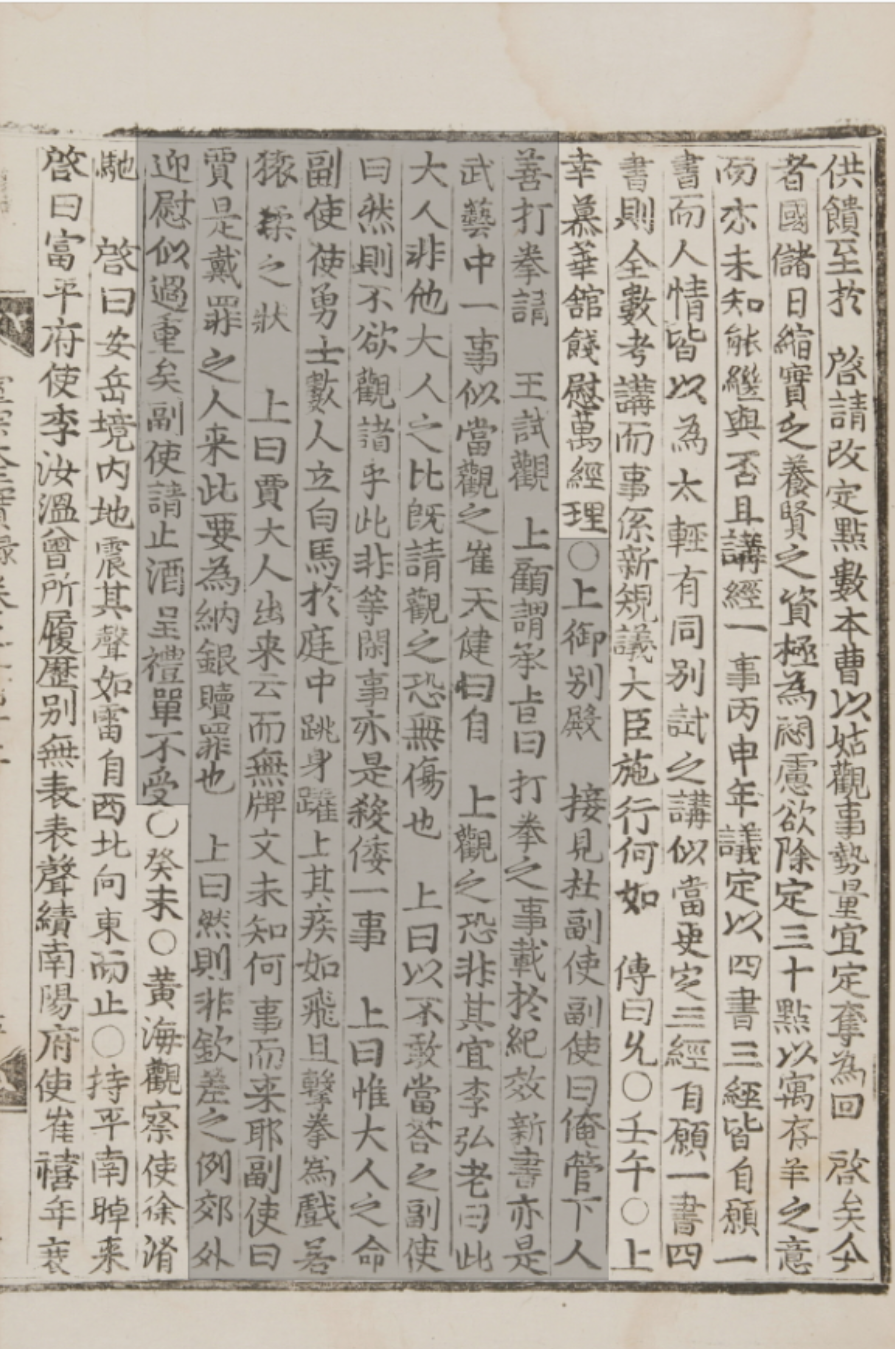 供饋至於 啓請改定點數本曹以姑觀事勢量宜定奪爲回 啓矣今
者國儲日縮實乏養賢之資極爲悶慮欲除定三十點以寓存羊之意
而亦未知能繼與否且講經一事丙申年議定以四書三經皆自願一
書而人情皆以爲太輕有同別試之講似當更定三經自願一書四
書則全數考講而事係新規議大臣施行何如 傳曰允○壬午○上
幸慕華館餞慰萬經理○上御別殿 接見杜副使副使曰俺管下人
善打拳請 王試觀 上顧謂承旨曰打拳之事載於紀效新書亦是
武藝中一事似當觀之崔天健曰自 上觀之恐非其宜李弘老曰此
大人非他大人之比旣請觀之恐無傷也 上曰以不敢當答之副使
曰然則不欲觀諸乎此非等閑事亦是殺倭一事 上曰惟大人之命
副使使勇士數人立白馬於庭中跳身躍上其疾如飛且擊拳爲戱若
猿猱之狀 上曰賈大人出來云而無牌文未知何事而來耶副使曰
賈是戴罪之人來此要爲納銀贖罪也 上曰然則非欽差之例郊外
迎慰似過重矣副使請止酒呈禮單不受○癸未○黃海觀察使徐渻
馳 啓曰安岳境內地震其聲如雷自西北向東而止○持平南晫來
啓曰富平府使李汝溫曾所履歷別無表表聲績南陽府使崔禧年衰